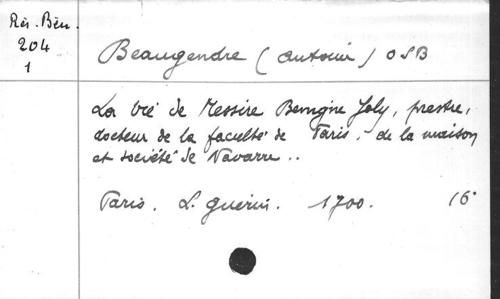 Rés. Bén.
204
1
Beaugendre (Antoine) OSB
La vie de Messire Benigne Joly, prestre,
docteur de la faculté de Paris, de la maison
et société de Navarre..
Paris. L. Guérin. 1700. 16°